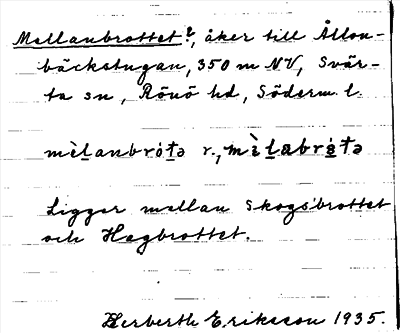 Mellanbrottet?, åker till Ållon-
bäckstugan, 350 m NV, Svär-
ta sn, Rönö hd, Söderm. l.
mèlanbrótə r., mèlabrótə
Ligger mellan Skogsbrottet
och Hagbrottet.
Herberth Eriksson 1935.